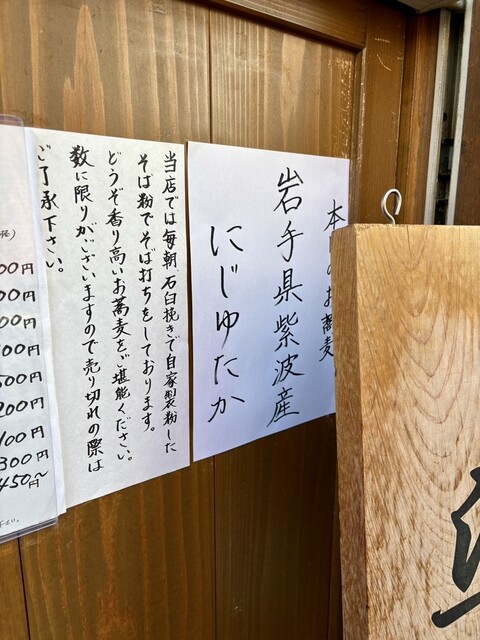 本日のお蕎麦
岩手県紫波産
にじゆたか
当店では毎朝、石臼挽きで自家製粉した
そば粉でそば打ちをしております。
どうぞ香り高いお蕎麦をご堪能ください。
数に限りがございますので売り切れの際は
ご了承下さい。
00円
00円
00円
00円
500円
200円
100円
300円
450円〜